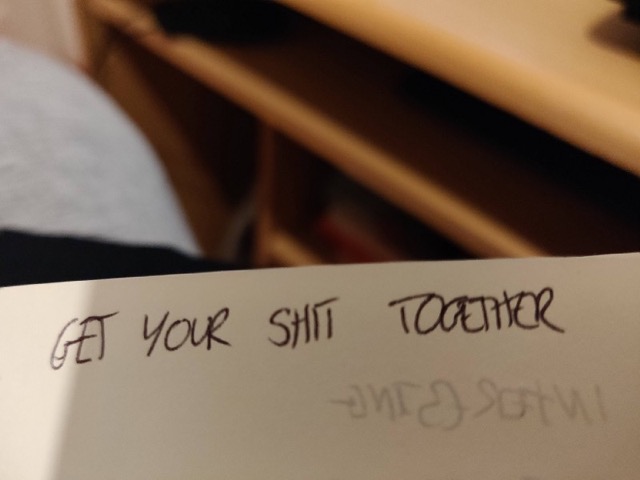 GET YOUR SHIT TOGETHER